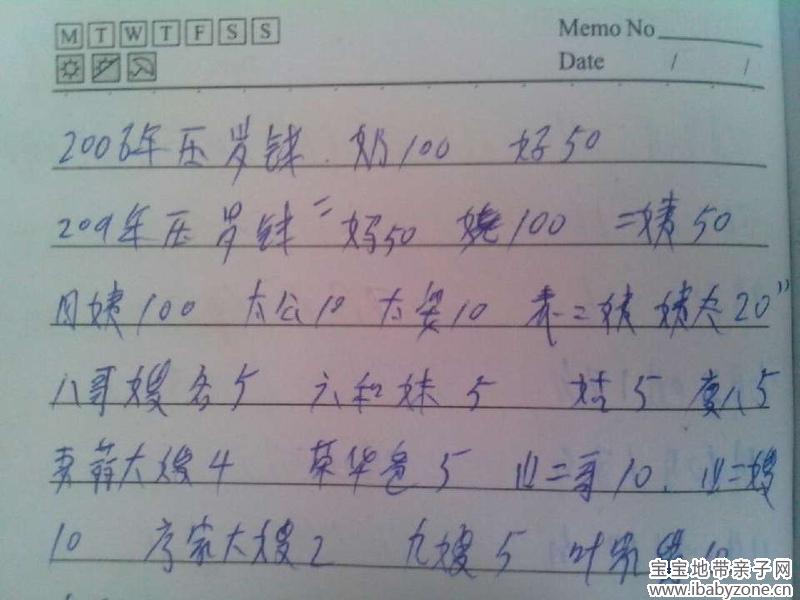 M T W T F S S
Memo No
Date / /
2006年压岁钱 奶100 妈50
2009年压岁钱= 妈50 100 二姨50
月姨100 太公10 太婆10 表二姨 姨丈20
八哥嫂各5 六和妹5 姑5 八5
大嫂4 荣华爸5 二哥10 二嫂
10 家大嫂2 九嫂5 叶 10
宝宝地带亲子网
www.ibabyzone.cn